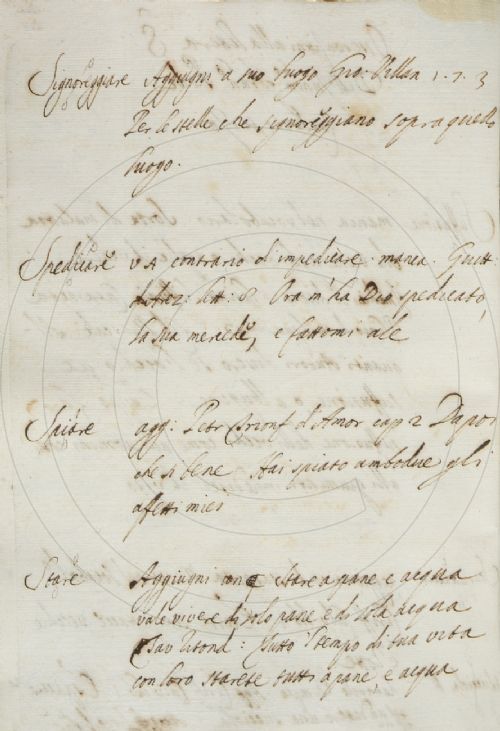 Signoreggiare Aggiugni a suo luogo Gio: Villa 1. 7. 3
Per le stelle che signoreggiano sopra quello
luogo.
Spedicare v A contrario d'impedicare manca. Guitt
lett: 8 Ora m'ha Dio spedicato,
la sua mercede, e fattomi ale
Spiare agg: Petr Trionf d'Amor cap 2 Dapoi
che sì bene Hai spiato ambodue gli
affetti miei
Stare Aggiugni con Stare a pane e acqua
vale vivere di solo pane e di sola acqua
Fav Ritond: Tutto 'l tempo di sua vita
con loro starete tutti a pane, e acqua